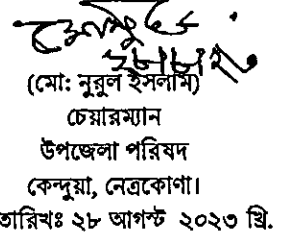 (মো: নুরুল ইসলাম)
চেয়ারম্যান
উপজেলা পরিষদ
কেন্দুয়া, নেত্রকোণা।
তারিখঃ ২৮ আগস্ট ২০২৩ খ্রি.